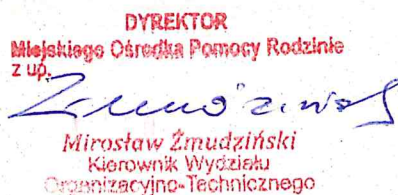 DYREKTOR
Miejskiego Ośrodka Pomocy Rodzinie
z up.
Mirosław Żmudziński
Kierownik Wydziału
Organizacyjno-Technicznego